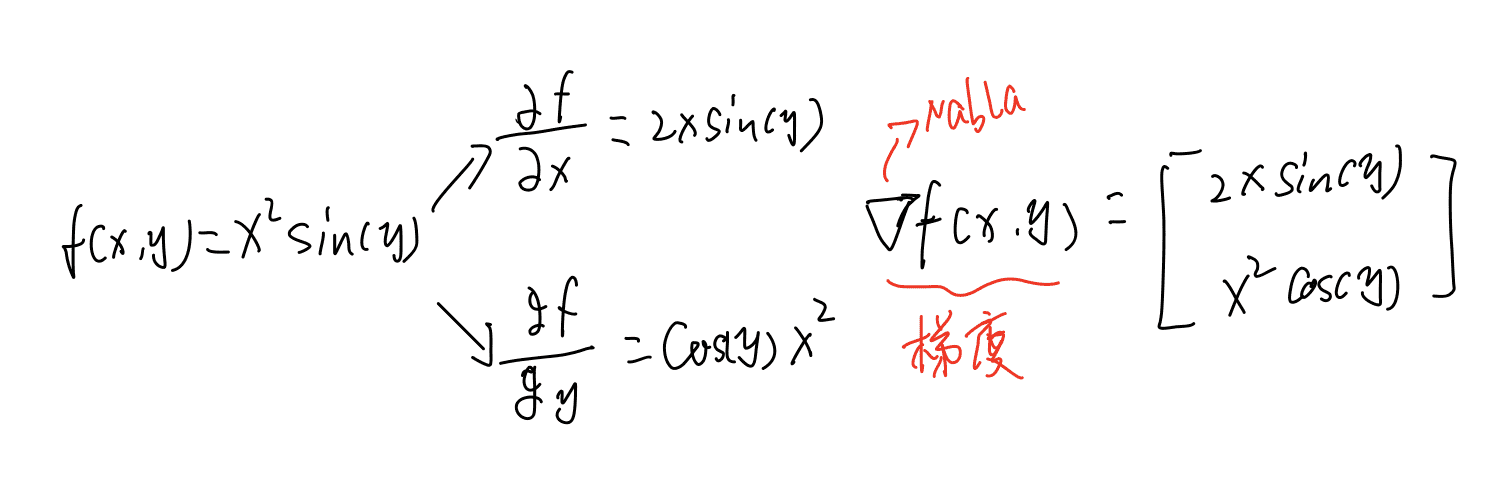 f(x,y)=x²sin(y)
∂f/∂x = 2x sin(y)
∂f/∂y = cos(y) x²
Nabla
∇f(x,y) = [2x sin(y)
x² cos(y)]
梯度